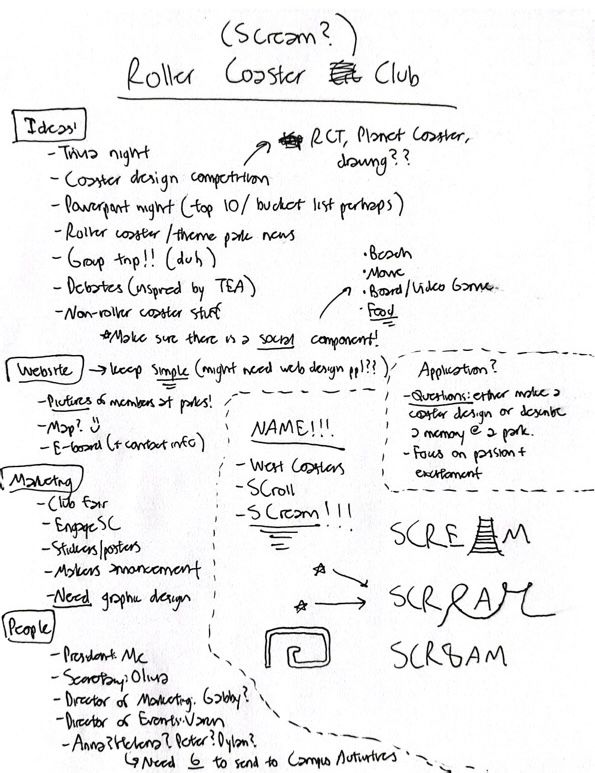 (Scream?)
Roller Coaster Club
Ideas!
- Trivia night
- Coaster design competition
RCT, Planet Coaster,
drawing??
- Powerpoint night (top 10/bucket list perhaps)
- Roller coaster/theme park news
- Group trip!! (duh)
- Debates (inspired by TEA)
- Non-roller coaster stuff
• Beach
• Movie
• Board/Video Game
• Food
*Make sure there is a social component!
Website → keep simple (might need web design ppl??)
- Pictures of members at parks!
- Map? ü
- E-board (+ contact info)
Application?
- Questions: either make a
coaster design or describe
a memory @ a park.
- Focus on passion +
excitement
Marketing
- Club Fair
- EngageSC
- Stickers/posters
- Makers announcement
- Need graphic design
NAME!!!
- West Coasters
- SCroll
- SCream!!!
SCREAM
SCREAM
SCREAM
People
- President: Me
- Secretary: Olivia
- Director of Marketing: Gabby?
- Director of Events: Varun
- Anna? Helena? Peter? Dylan?
↳ Need 6 to send to Campus Activities